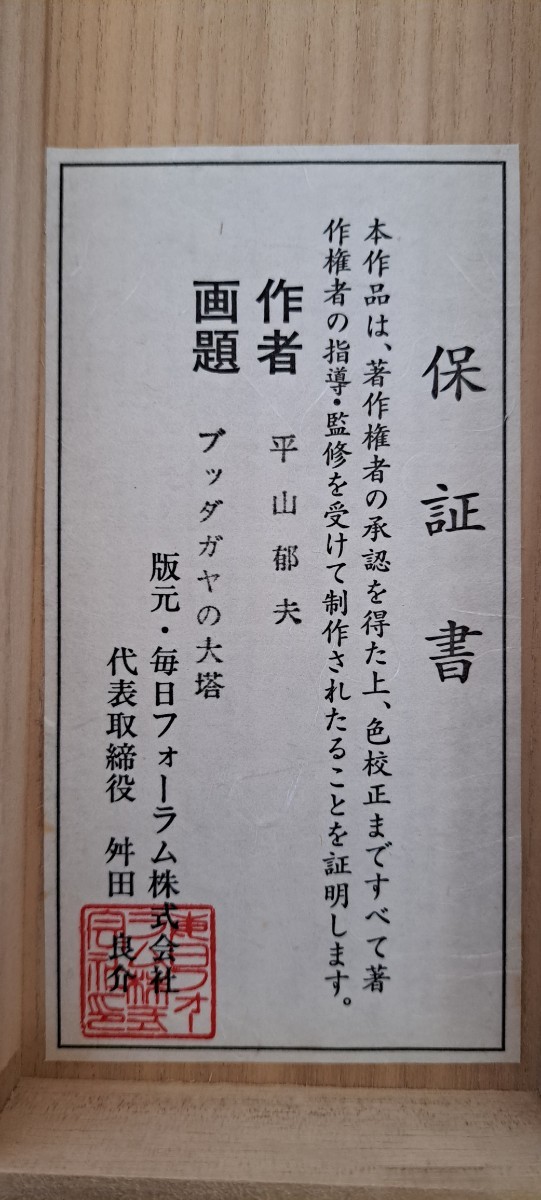 保証書
本作品は、著作権者の承認を得た上、色校正まですべて著
作権者の指導・監修を受けて制作されたることを証明します。
作者 平山郁夫
画題 ブッダガヤの大塔
版元・毎日フォーラム株式会社
代表取締役 舛田良介